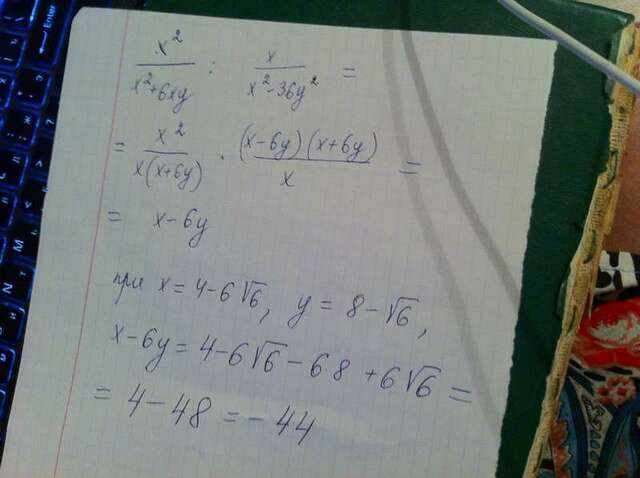 x²/(x²+6xy) : x/(x²-36y²) =
= x²/(x(x+6y)) · (x-6y)(x+6y)/x =
= x-6y
при x=4-6√6, y=8-√6,
x-6y=4-6√6-68+6√6=
=4-48=-44
Enter
N
M